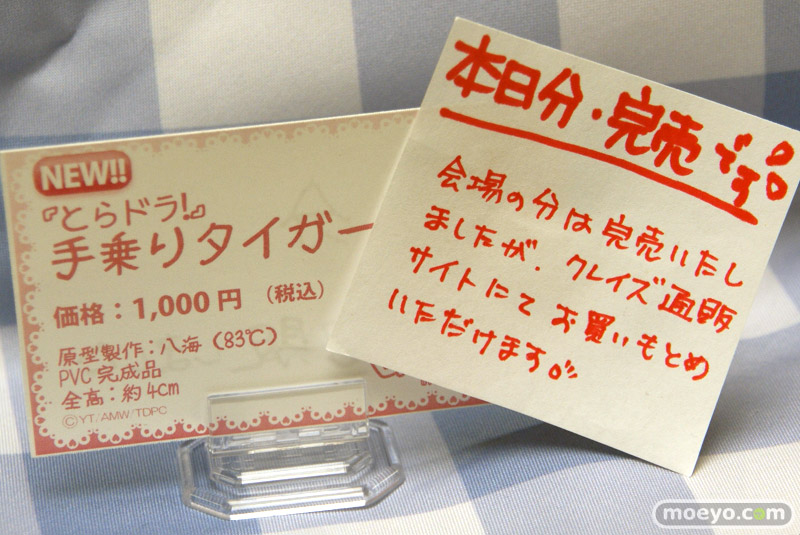 NEW!!
『とらドラ!』
手乗りタイガー
価格：1,000円（税込）
原型製作：八海（83℃）
PVC完成品
全高：約4cm
©YT/AMW/TDPC
本日分・完売です
会場の分は完売いたし
ましたが、クレイズ通販
サイトにてお買いもとめ
いただけます。
moeyo.com